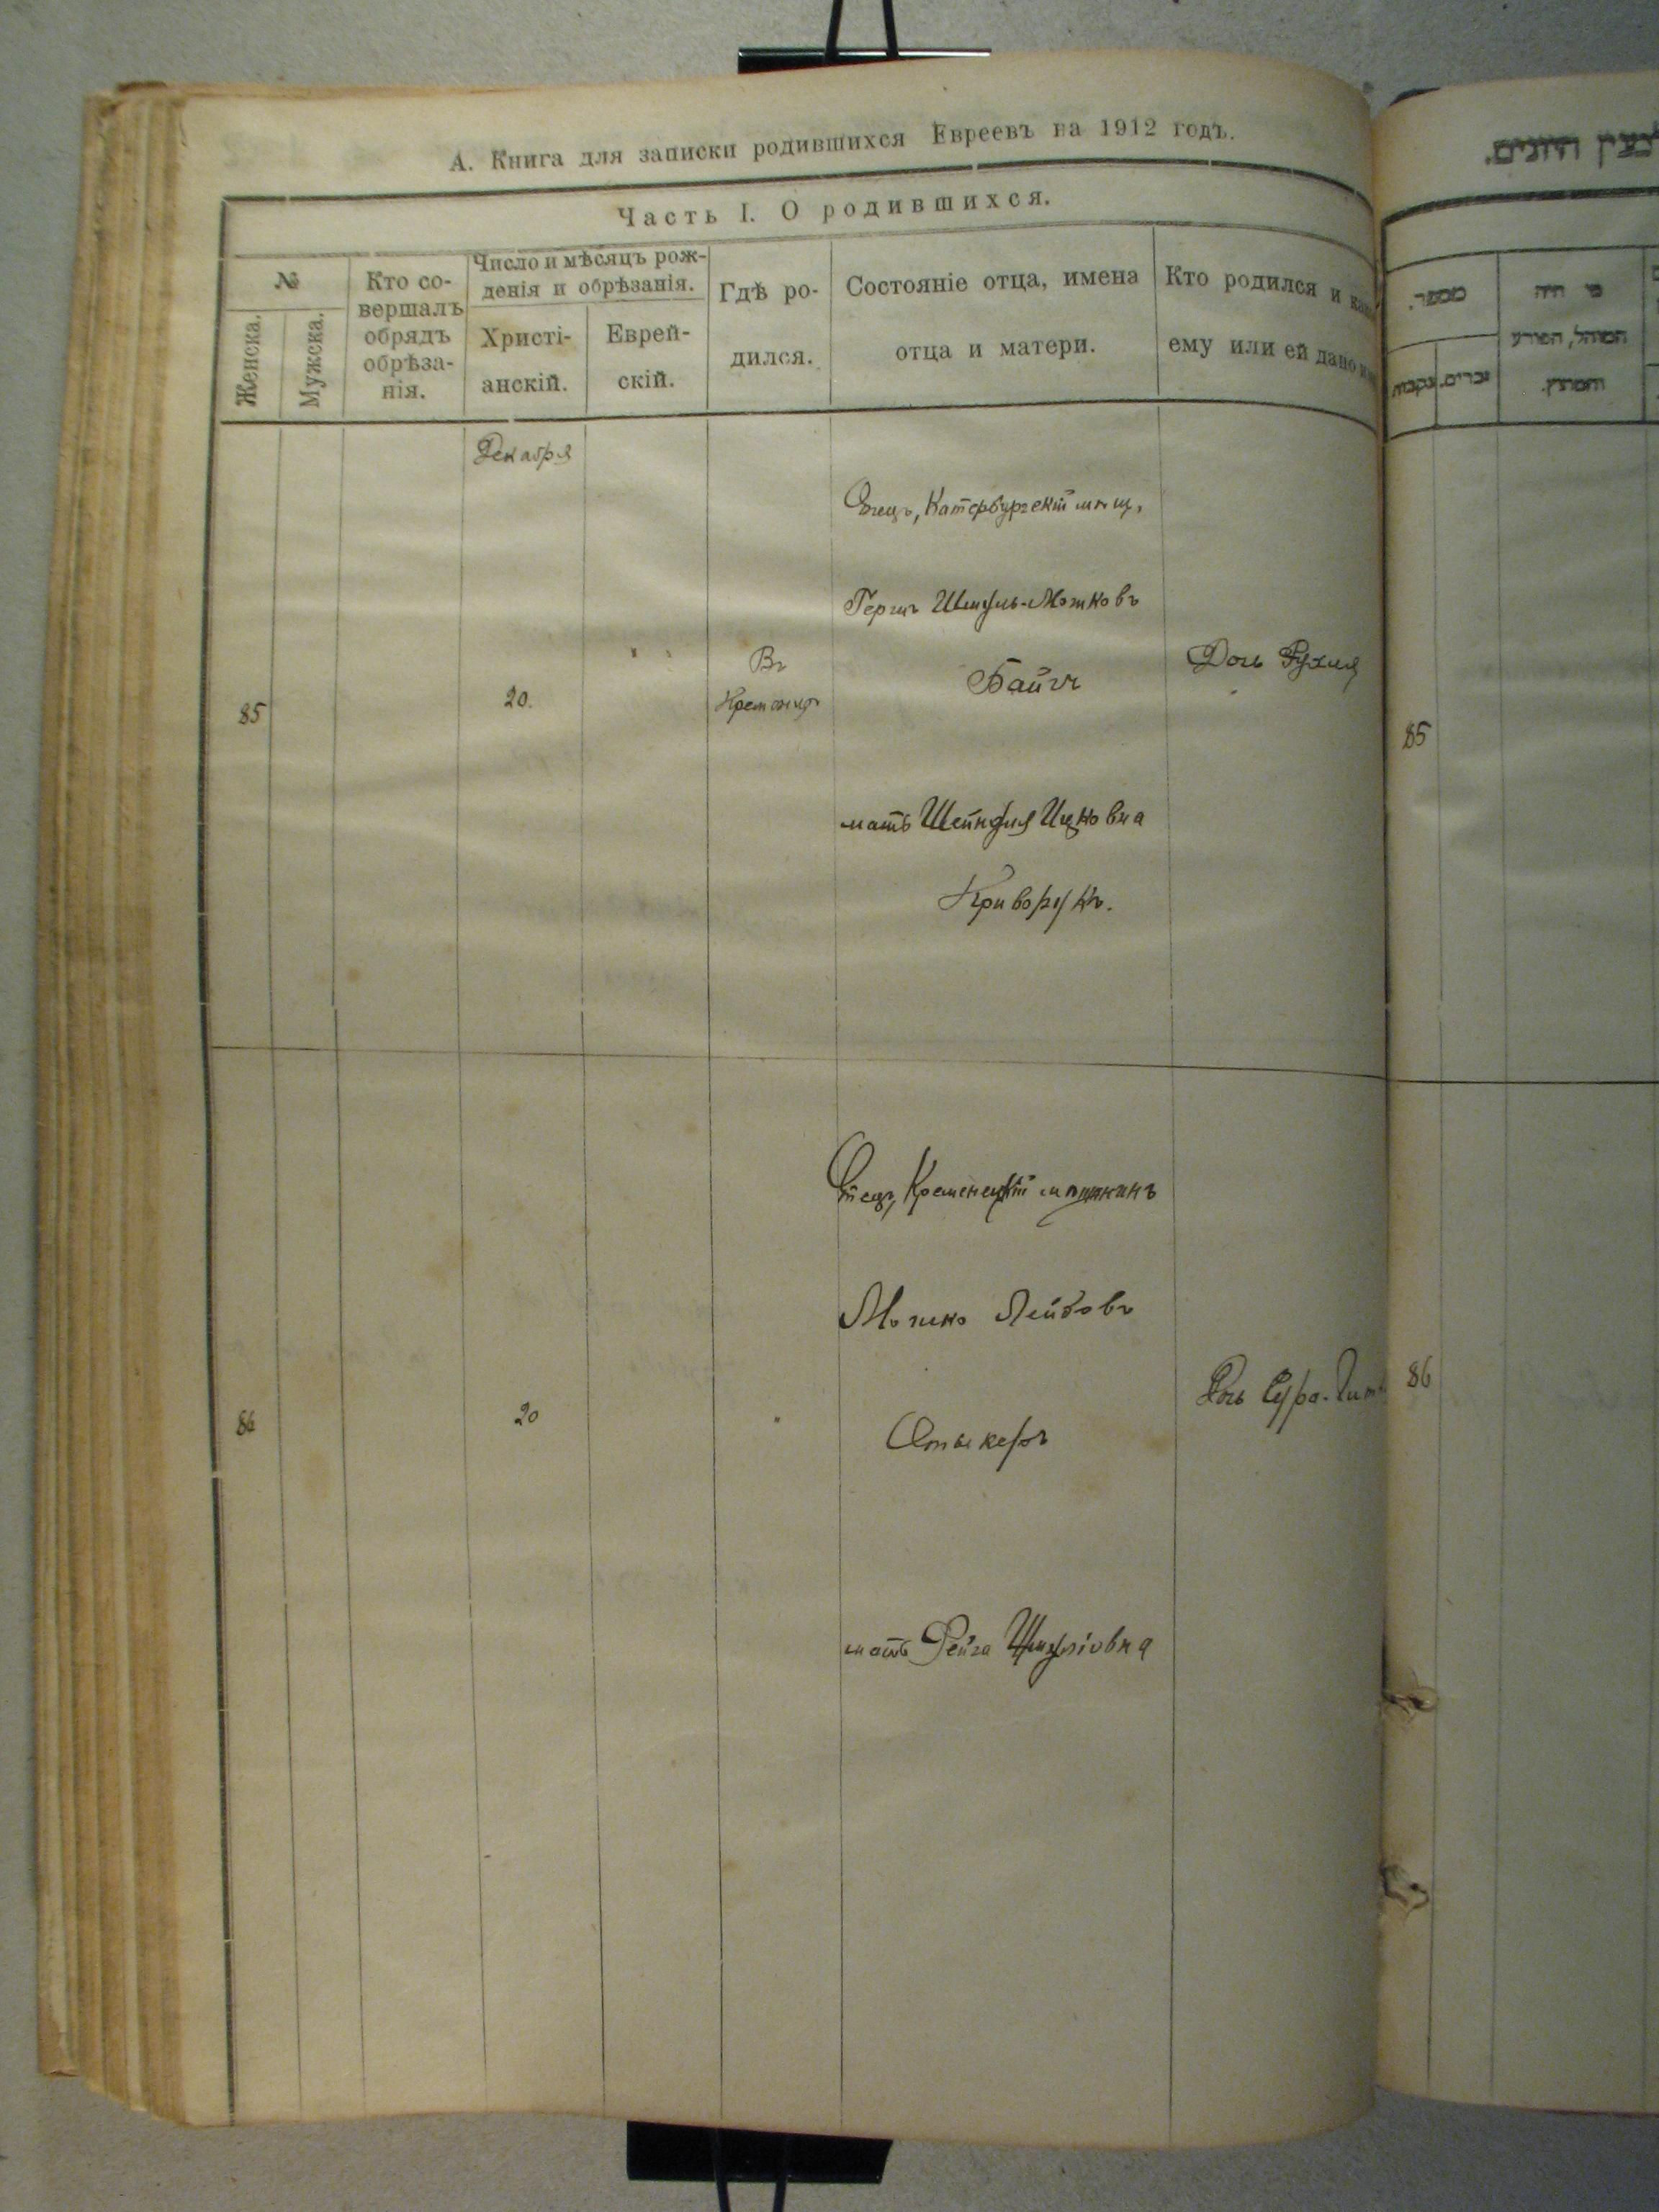 А. Книга для записки родившихся Евреевъ на 1912 годъ.
Часть I. О родившихся.
№
Женска.
Мужска.
Кто со-
вершалъ
обрядъ
обрѣза-
нія.
Число и мѣсяцъ рож-
денія и обрѣзанія.
Христі-
анскій.
Еврей-
скій.
Гдѣ ро-
дился.
Состояніе отца, имена
отца и матери.
Кто родился и
ему или ей дано
Декабря
85
20.
Въ
Отецъ, Катербургскій мѣщ.
Гершъ Шмуль-Мошковъ
мать Шейндля Ицковна
Криворукъ.
Дочь Рухля
86
20
Отецъ, Кременецкій мѣщанинъ
Мошко Лейбовъ
Отыкеръ
мать Рейза Шмуліовна
Дочь Сура-
מספר.
נקבות
זכרים.
מי היה
המוהל, הפורע
והמוצץ.
85
86